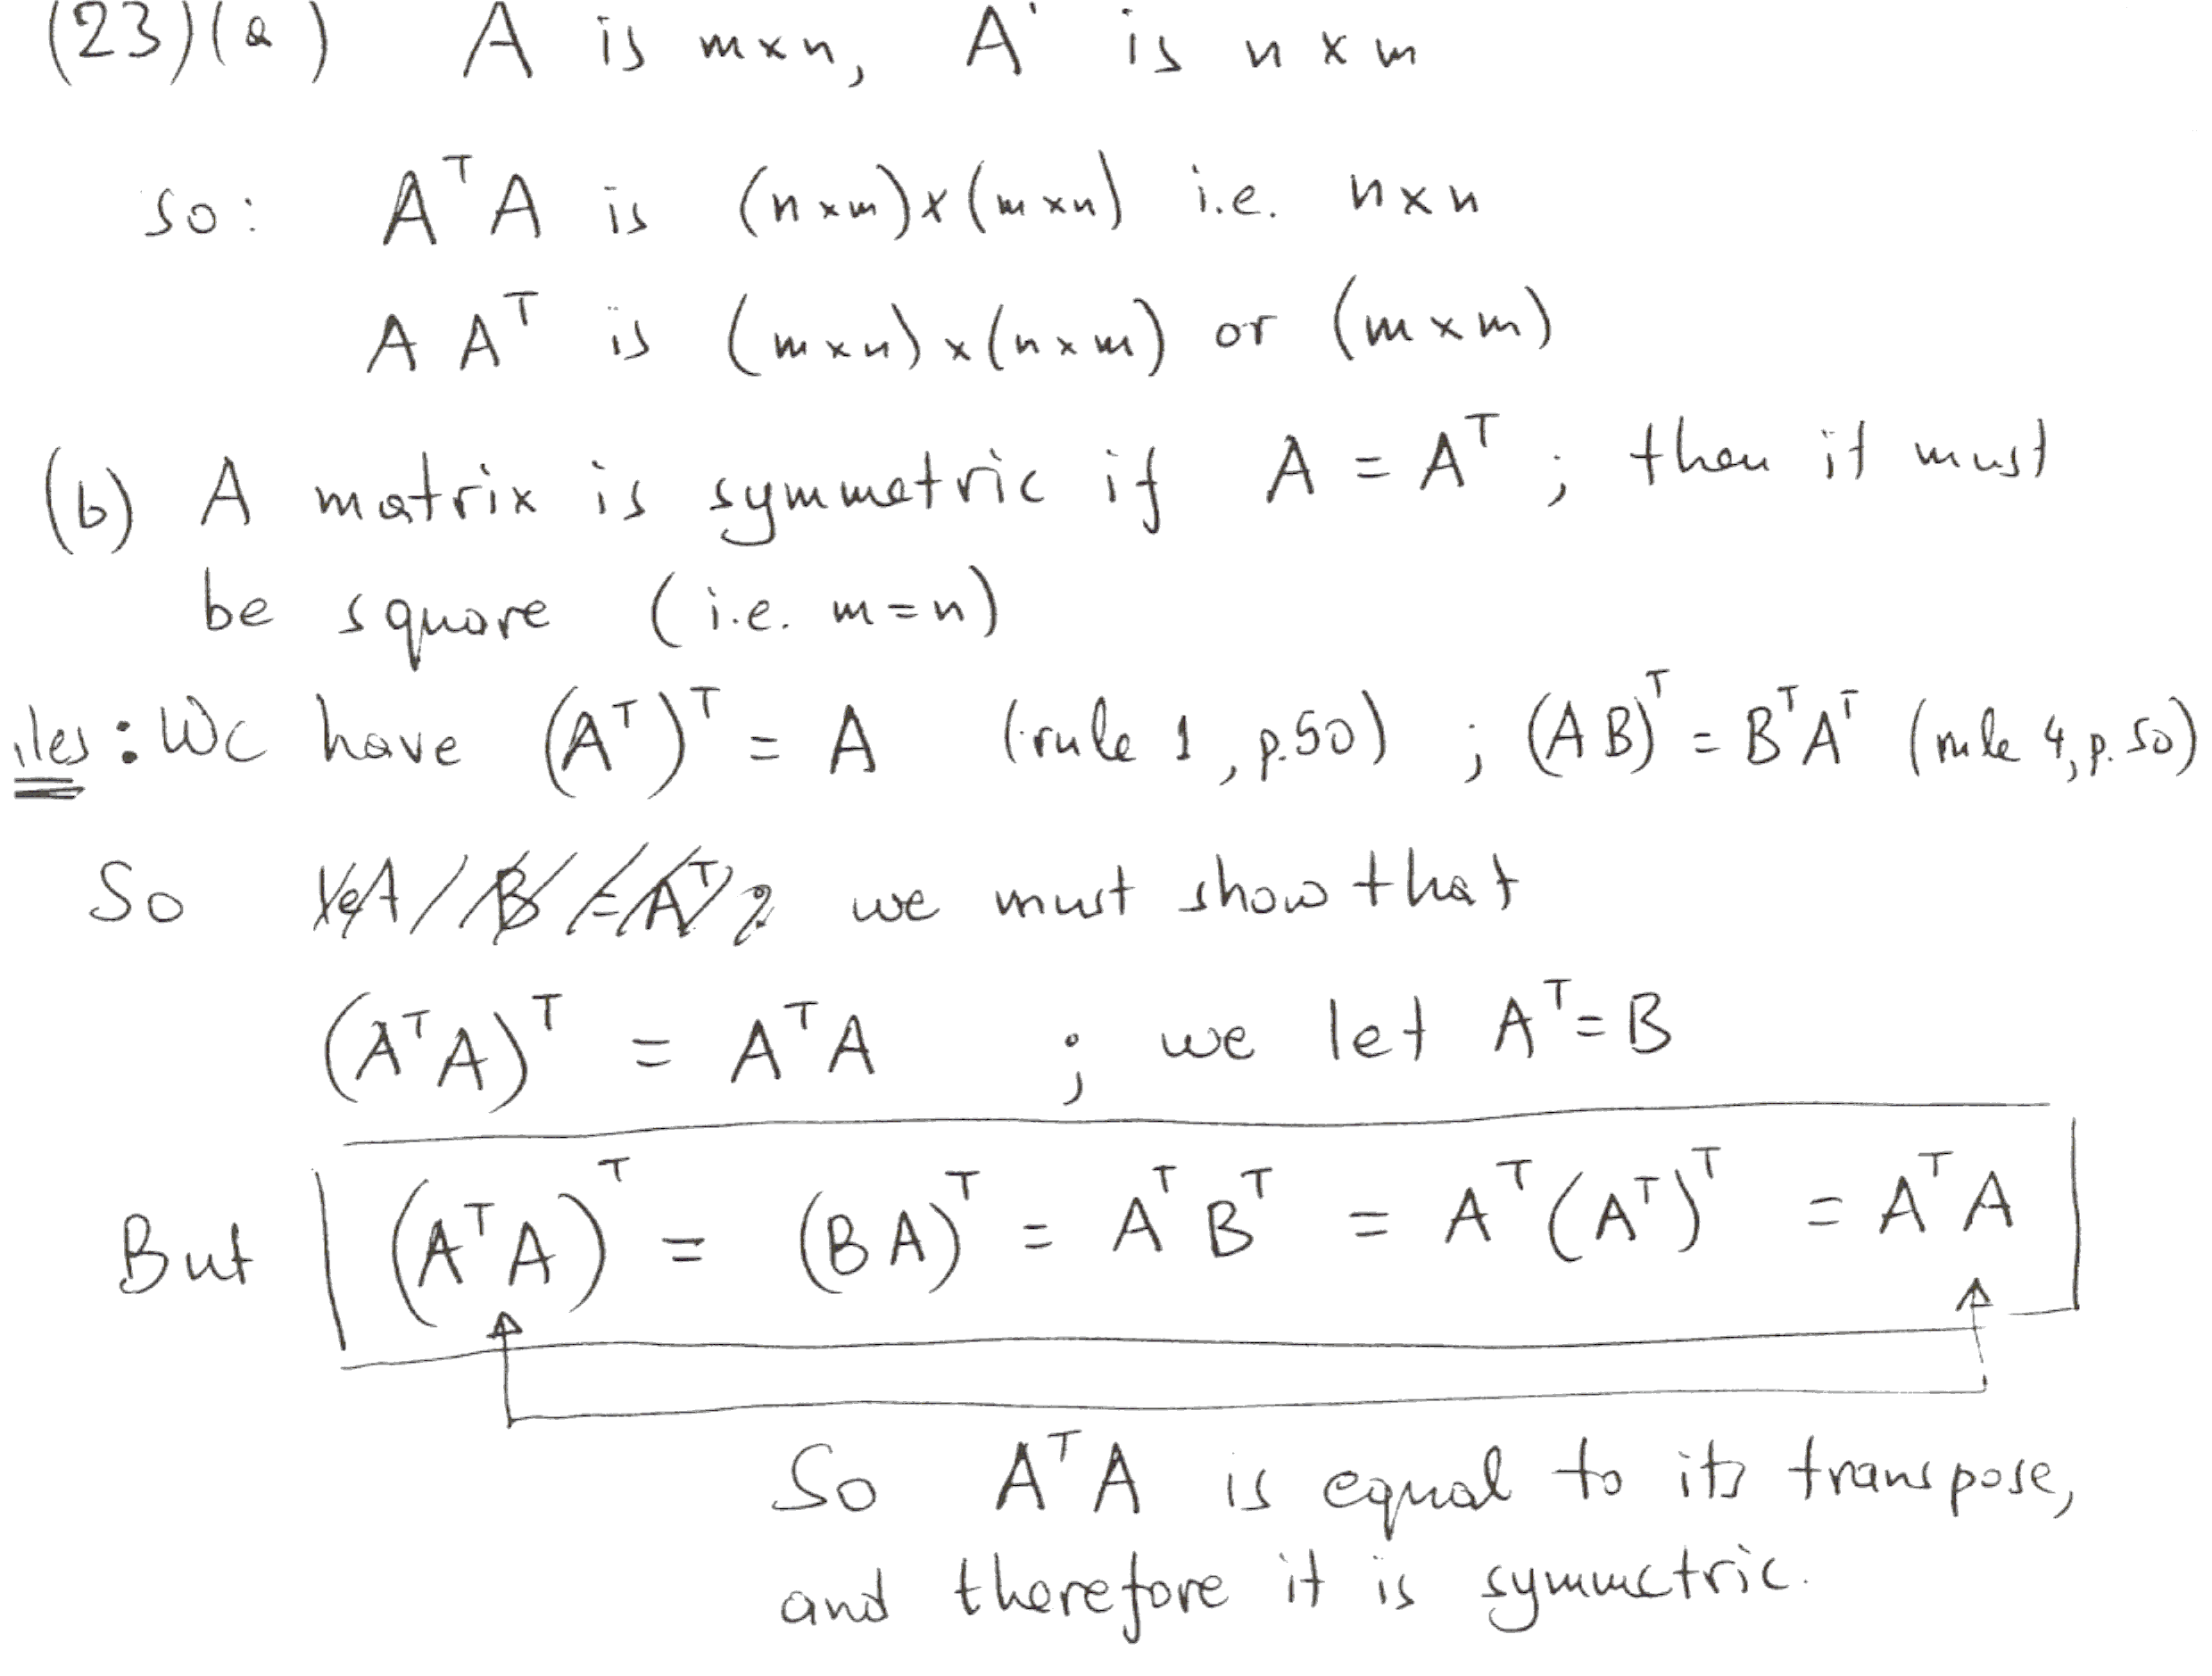 (23)(a) A is m×n, A' is n×m
so: AᵀA is (n×m)×(m×n) i.e. n×n
AAᵀ is (m×n)×(n×m) or (m×m)
(b) A matrix is symmetric if A = Aᵀ ; then it must
be square (i.e. m=n)
iles: We have (Aᵀ)ᵀ = A (rule 1, p.50) ; (AB)ᵀ = BᵀAᵀ (rule 4, p.50)
So we must show that
(AᵀA)ᵀ = AᵀA ; we let Aᵀ=B
But (AᵀA)ᵀ = (BA)ᵀ = AᵀBᵀ = Aᵀ(Aᵀ)ᵀ = AᵀA
So AᵀA is equal to its transpose,
and therefore it is symmetric.